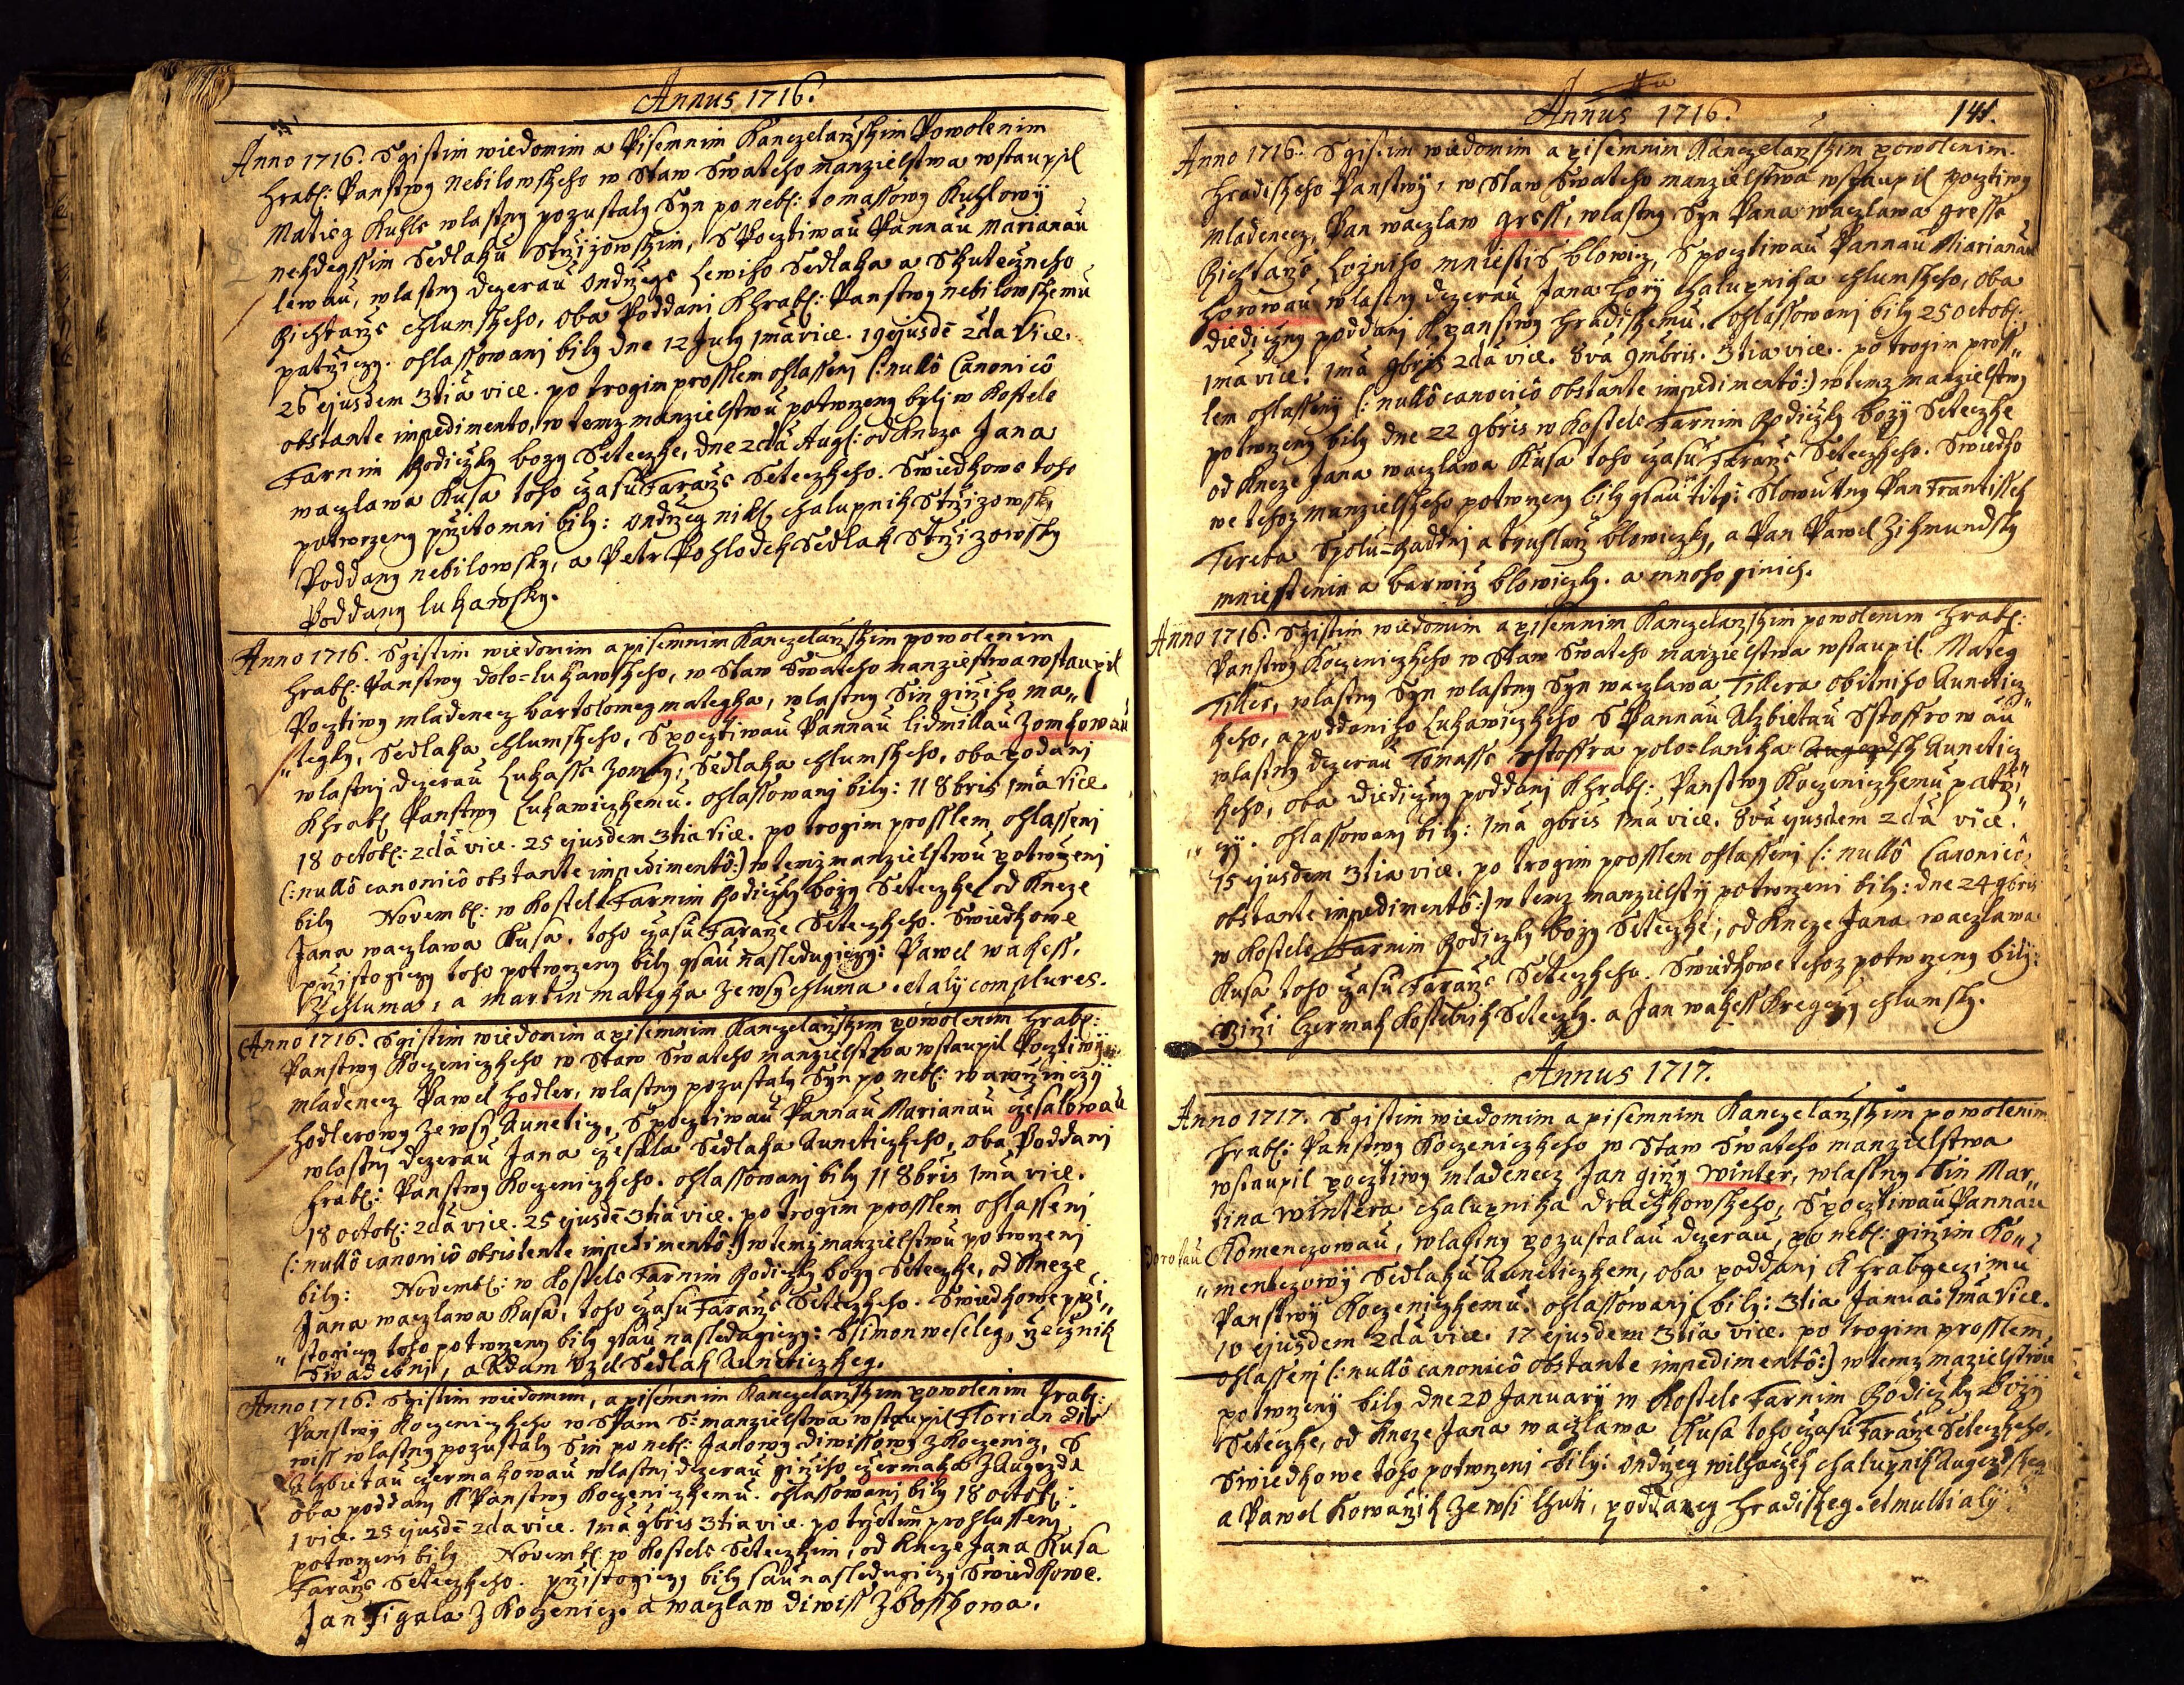 Annus 1716.
Anno 1716. S gistim wiedomim a Pisemnim Kanczelarzskim Powolenim
hrab: Panstwy Nebilowskeho w Staw Swateho manzielstwa wstaupil
Matieg Kuhle wlastny pozustaly Syn po neb: tomassowy Kuhlowÿ
nekdegssim Sedlaku Strzizowskim, S Pocztiwau Pannau Marianau
lewau, wlastny dczerau Ondrzege Lewiho Sedlaka a Skuteczneho
Richtarze chlumskeho, oba Poddani k hrab: Panstwy nebilowskemu
patrziczy. ohlassowani bily dne 12 July 1ma vice. 19 ejusdē 2da Vice.
26 ejusdem 3tia vice. po trogim prosslem ohlasseni (: nullô Canonicô
obstante impedimento, w temz manzielstwu potwrzeny byli w Kostele
Farnim Rodiczky bozy Seteczke, dne 2da Aug: od Kneze Jana
waczlawa Kusa toho czasu Fararze Seteczkeho. Swiedkowe toho
potwrzeny przitomni bily: Ondrzeg nikl chalupnik Strzizowsky
Poddany nebilowsky, a Petr Pohlodek Sedlak Strzizowsky
Poddany lukawsky.
Anno 1716. S gistim wiedomim a pisemnim Kanczelarzskim powolenim
hrab: Panstwy dolo=lukawskeho, w Staw Swateho manzielstwa wstaupil
Pocztiwy mladenecz bartolomeg mategka, wlastny Sin girziho ma„
„tegky, Sedlaka chlumskeho, S pocztiwau Pannau lidmillau Zomkowau
wlastni dczerau Lukasse Zomky, Sedlaka chlumskeho, oba podani
k hrab Panstwy Lukawiczkemu. ohlassowani bily: 11 8bris 1ma Vice
18 octob: 2da vice. 25 ejusdem 3tia Vice. po trogim prosslem ohlasseni
(: nullô canonicô obstante impedimentô:) w temz manzielstwu potwrzeni
bily Novemb: w Kostele Farnim Rodiczky bozy Seteczke od Kneze
Jana waczlawa Kusa, toho czasu Fararze Seteczkeho. Swiedkowe
przistogiczy toho potwrzeny bily gsau nasledugiczy: Pawel wakess,
Z chluma, a martin mategka ze wsy chluma. et alÿ complures.
Anno 1716. S gistim wiedomim a pisemnim Kanczelarzskim powolenim hrab:
Panstwy Koczeniczkeho w Staw Swateho manzielstwa wstaupil Pocztiwÿ
mladenecz Pawel hodler, wlastny pozustaly Syn po neb: wawrzinczÿ
hodlerowy ze wsÿ Auneticz, S pocztiwau Pannau Marianau czesalowau
wlastny dczerau Jana czesala Sedlaka Auneticzkeho, oba Poddani
hrab: Panstwy Koczeniczkeho. ohlassowani bily 11 8bris 1ma vice.
18 octob: 2da vice. 25 ejusdē 3tia vice. po trogim prosslem ohlasseni
(: nullô canonicô obsistente impedimentô:) w temz manzielstwu potwrzeni
bily: Novemb: w Kostele Farnim Rodiczky bozy Seteczke, od Kneze
Jana waczlawa Kusa, toho czasu Fararze Seteczkeho. Swiedkowe przi„
„stogiczy toho potwrzeny bily gsau nasledugiczy: Ssimon weseleg, rzecznik
Swadebni, a Adam Uzel Sedlak Auneticzkeg.
Anno 1716. S gistim wiedomim, a pisemnim Kanczelarzskim powolenim hrab:
Panstwÿ Koczeniczkeho w Staw S: manzielstwa wstaupil Florian Di
wiss wlastny pozustaly Sin po neb: Janowy diwissowy z Koczenicz, S
Alzbietau czermakowau wlastni dczerau girziho czermaka z Augezda
oba poddany k Panstwy Koczeniczkemu. ohlassowani bily 18 octob:
1 vice. 25 ejusdē 2da vice. 1ma 9bris 3tia vice. po trzetim prohlasseni
potwrzeni bily Novemb w Kostele Seteczkem, od Kneze Jana Kusa
Fararze Seteczkeho. przistogiczy bily sau nasledugiczy Swiedkowe.
Jan Figala z Koczenicz. a waczlaw diwiss z bosskowa.
Annus 1716.
141.
Anno 1716. S gistim wiedomim a pisemnim Kanczelarzskim powolenim.
hradiskeho Panstwÿ, w Staw Swateho manzielstwa wstaupil pocztiwy
mladenecz, Pan waczlaw gress, wlastny Syn Pana waczlawa gresse
Richtarze Lozniho mniestis blowicz, S pocztiwau Pannau Marianau
horowau wlastny dczerau Jana hory chalupnika chlumskeho, oba
diediczny poddani k panstwy hradiskemu. ohlassowani bily 25 octob:
1ma vice. 1ma 9bris 2da vice. 8va 9mbris. 3tia vice. po trogim pross„
lem ohlassenÿ (: nullô canonicô obstante impedimentô:) w temz manzielstwy
potwrzeny bily dne 22 9bris w Kostele Farnim Rodiczky bozÿ Seteczke
od Kneze Jana waczlawa Kusa toho czasu Fararze Seteczkeho. Swiedko
we tehoz manzielskeho potwrzeny bily gsau titiz: Slowutny Pan Frantissek
Tereba Spolu=Raddni a truhlarz blowiczky, a Pan Pawel Zikmundsky
mniestenin a barwirz blowiczky. a mnoho ginich.
Anno 1716. S gistim wiedomim a pisemnim Kanczelarzskim powolenim hrab:
Panstwy Koczeniczkeho w Staw Swateho manzielstwa wstaupil Mateg
Tiller, wlastny Syn wlastny Syn waczlawa Tillera obilniho Auneticz„
keho, a poddaniho Lukawiczkeho S Pannau Alzbietau Sstoffrowau
wlastny dczerau Tomasse Sstoffra polo=lanika Auneticz„
keho, oba diediczny poddani k hrab: Panstwy Koczeniczkemu patrzi„
„czÿ. ohlassowani bily: 1ma 9bris 1ma vice. 8va ejusdem 2da vice.
15 ejusdem 3tia vice. po trogim prosslem ohlasseni (: nullô Canonicô
obstante impedimentô:) w temz manzielstwÿ potwrzeni bily: dne 24 9bris
w Kostele Farnim Rodiczky bozy Seteczke, od Kneze Jana waczlawa
Kusa toho czasu Fararze Seteczkeho. Swiedkowe tehoz potwrzeny bily:
Girzi Czermak Kostelnik Seteczky. a Jan wakess Kregczy chlumsky.
Annus 1717.
Anno 1717. S gistim wiedomim a pisemnim Kanczelarzskim powolenim
hrab: Panstwy Koczeniczkeho w Staw Swateho manzielstwa
wstaupil pocztiwy mladenecz Jan girzy winter, wlastny Sin Mar„
tina wintera chalupnika drachkowskeho, S pocztiwau Pannau
Dorotau Komenczowau, wlastny pozustalau dczerau, po neb: girzim Ko„
„menczowÿ Sedlaku Auneticzkem, oba poddani k hrabgeczimu
Panstwÿ Koczeniczkemu. ohlassowani bily: 3tia Janua: 1ma Vice.
10 ejusdem 2da vice. 17 ejusdem 3tia vice. po trogim prosslem
ohlasseni (: nullô canonicô obstante impedimentô:) w temz mazielstwu
potwrzenÿ bily dne 20 Januarÿ w Kostele Farnim Rodiczky bozÿ
Seteczke, od Kneze Jana waczlawa Kusa toho czasu Fararze Seteczkeho.
Swiedkowe toho potwrzeni bily: Ondrzeg wilhaczek chalupnik Augezdskeg
a Pawel Kowarzik ze wsi lhuti, poddaneg hradiskeg. et multi alÿ.